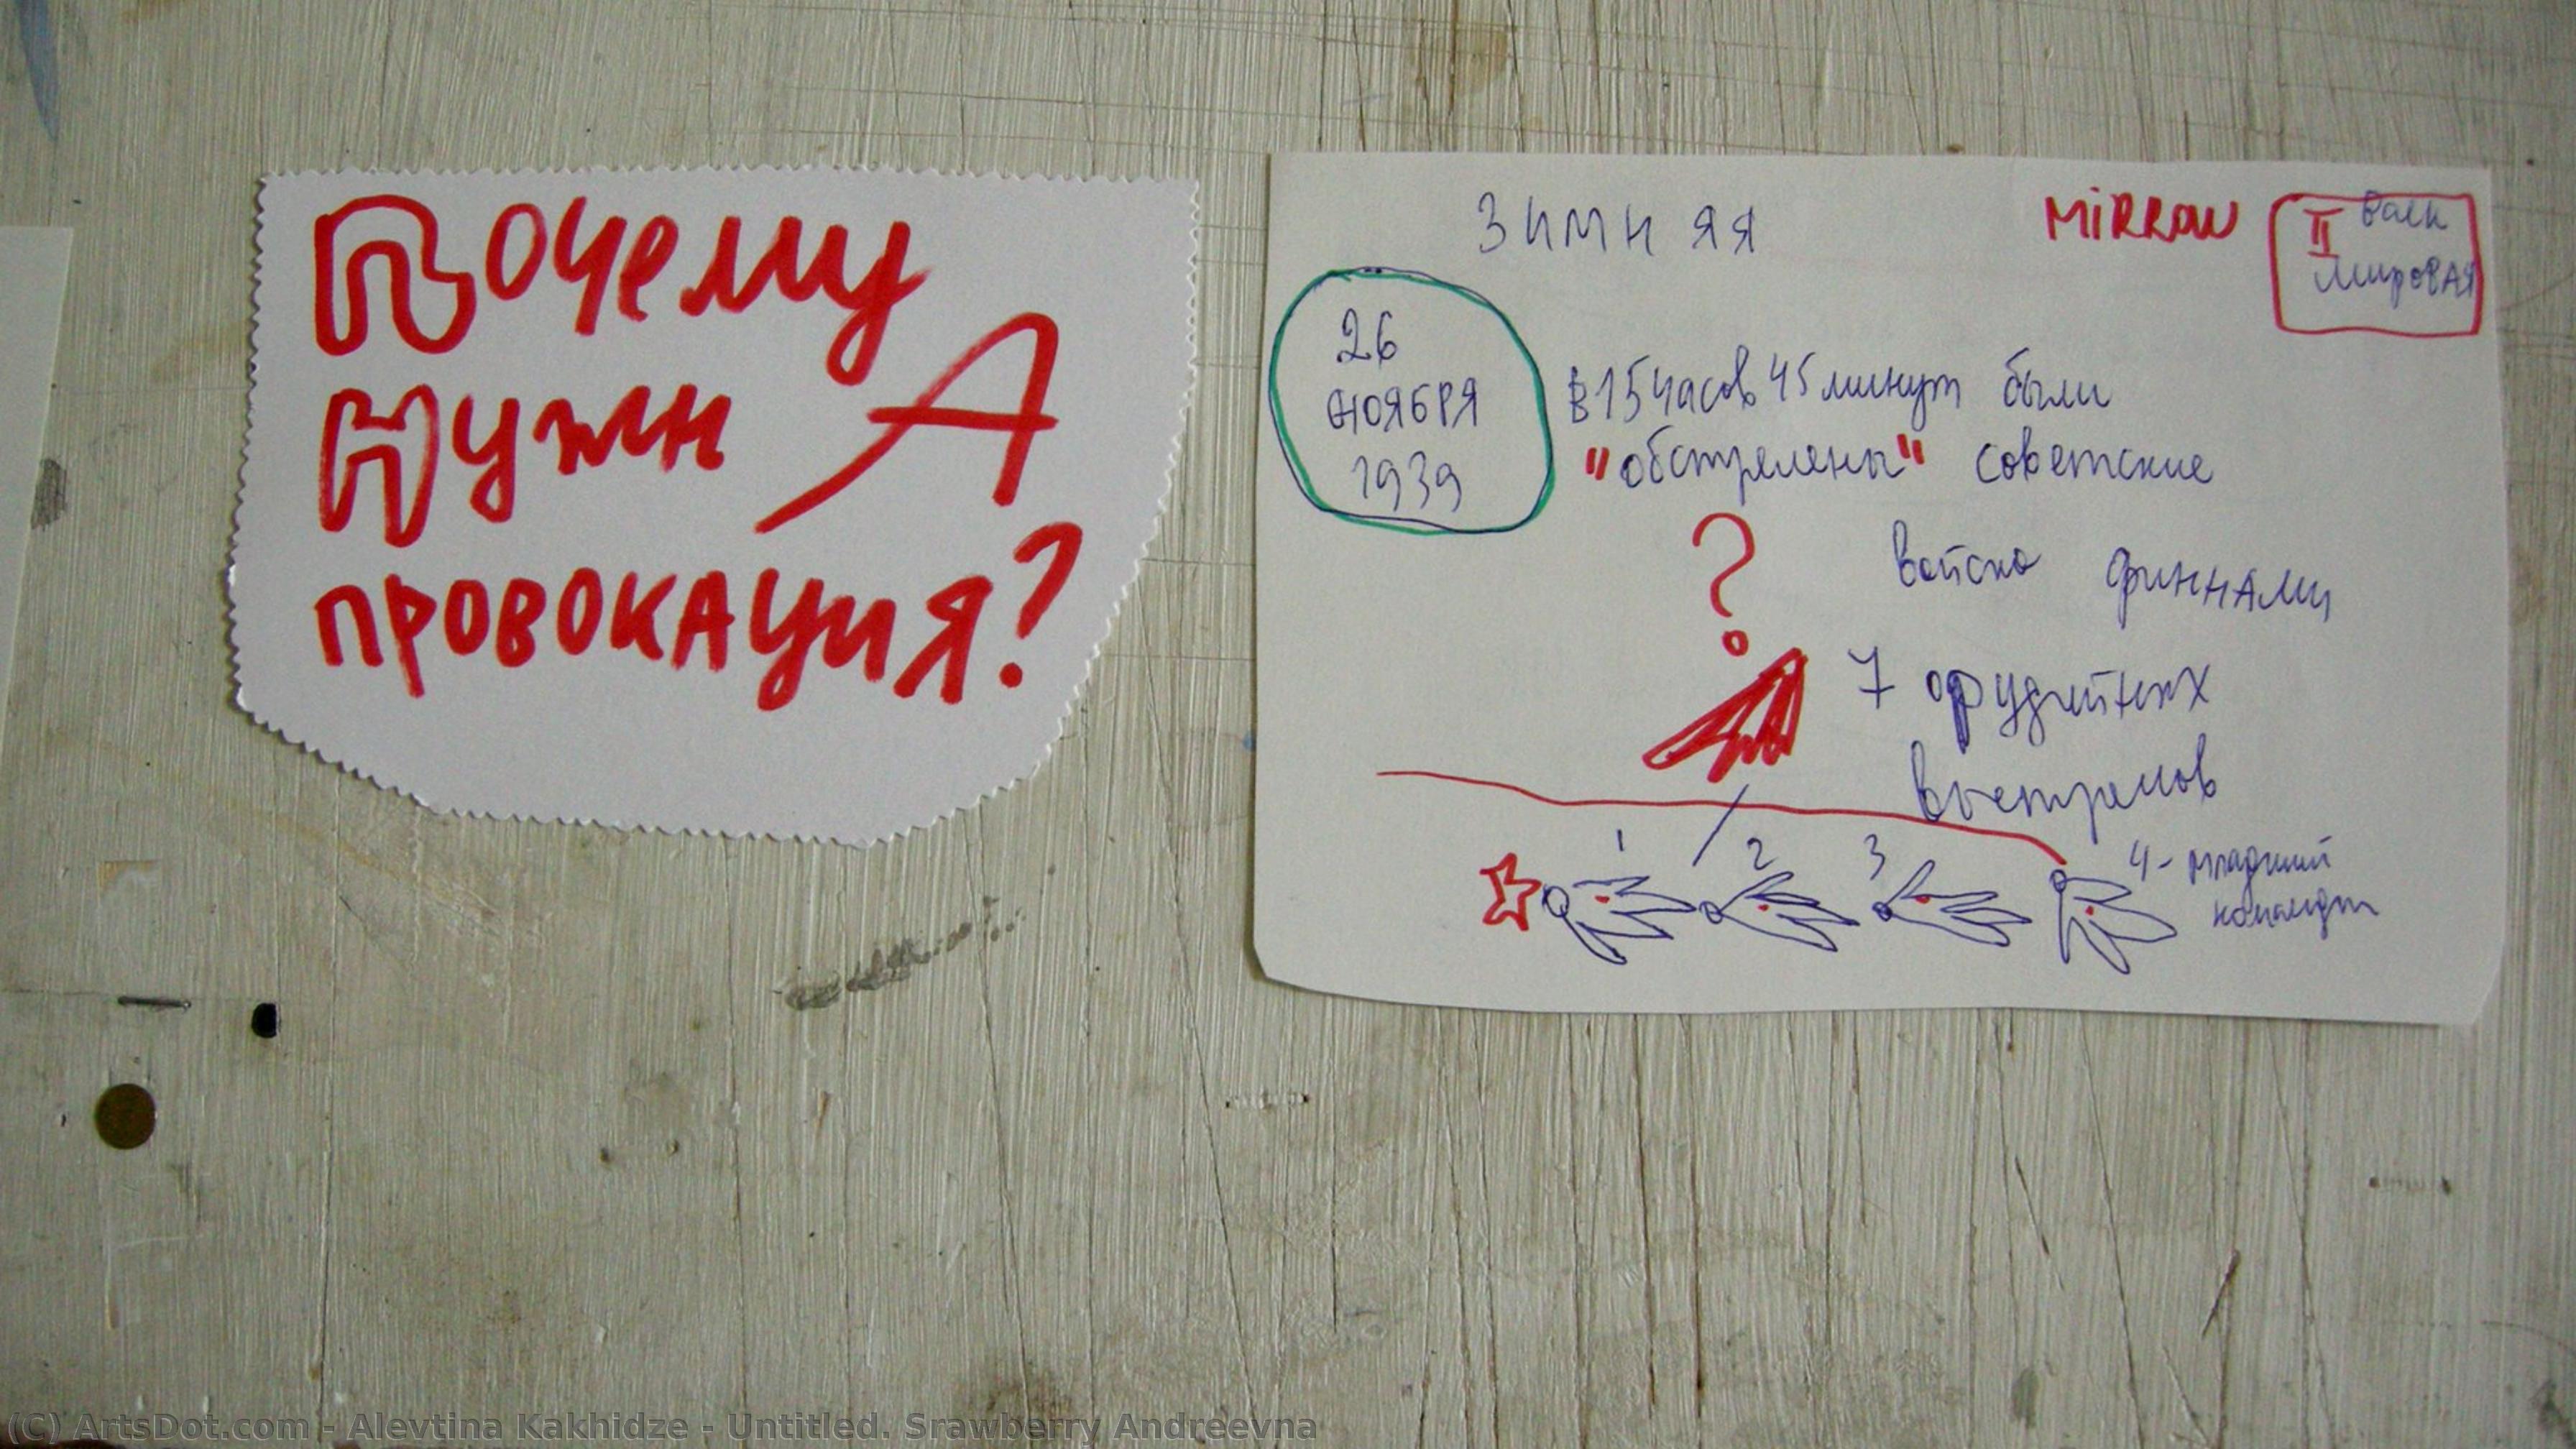 Почему
нужнА
провокация?
Зимняя
MiRROW
II Вели
мировая
26
ноября
1939
В 15 часов 45 минут были
"обстрелены" советские
войска финнами
?
7 орудийных
выстрелов
1
2
3
4 - младший
командт
(C) ArtsDot.com - Alevtina Kakhidze - Untitled. Srawberry Andreevna